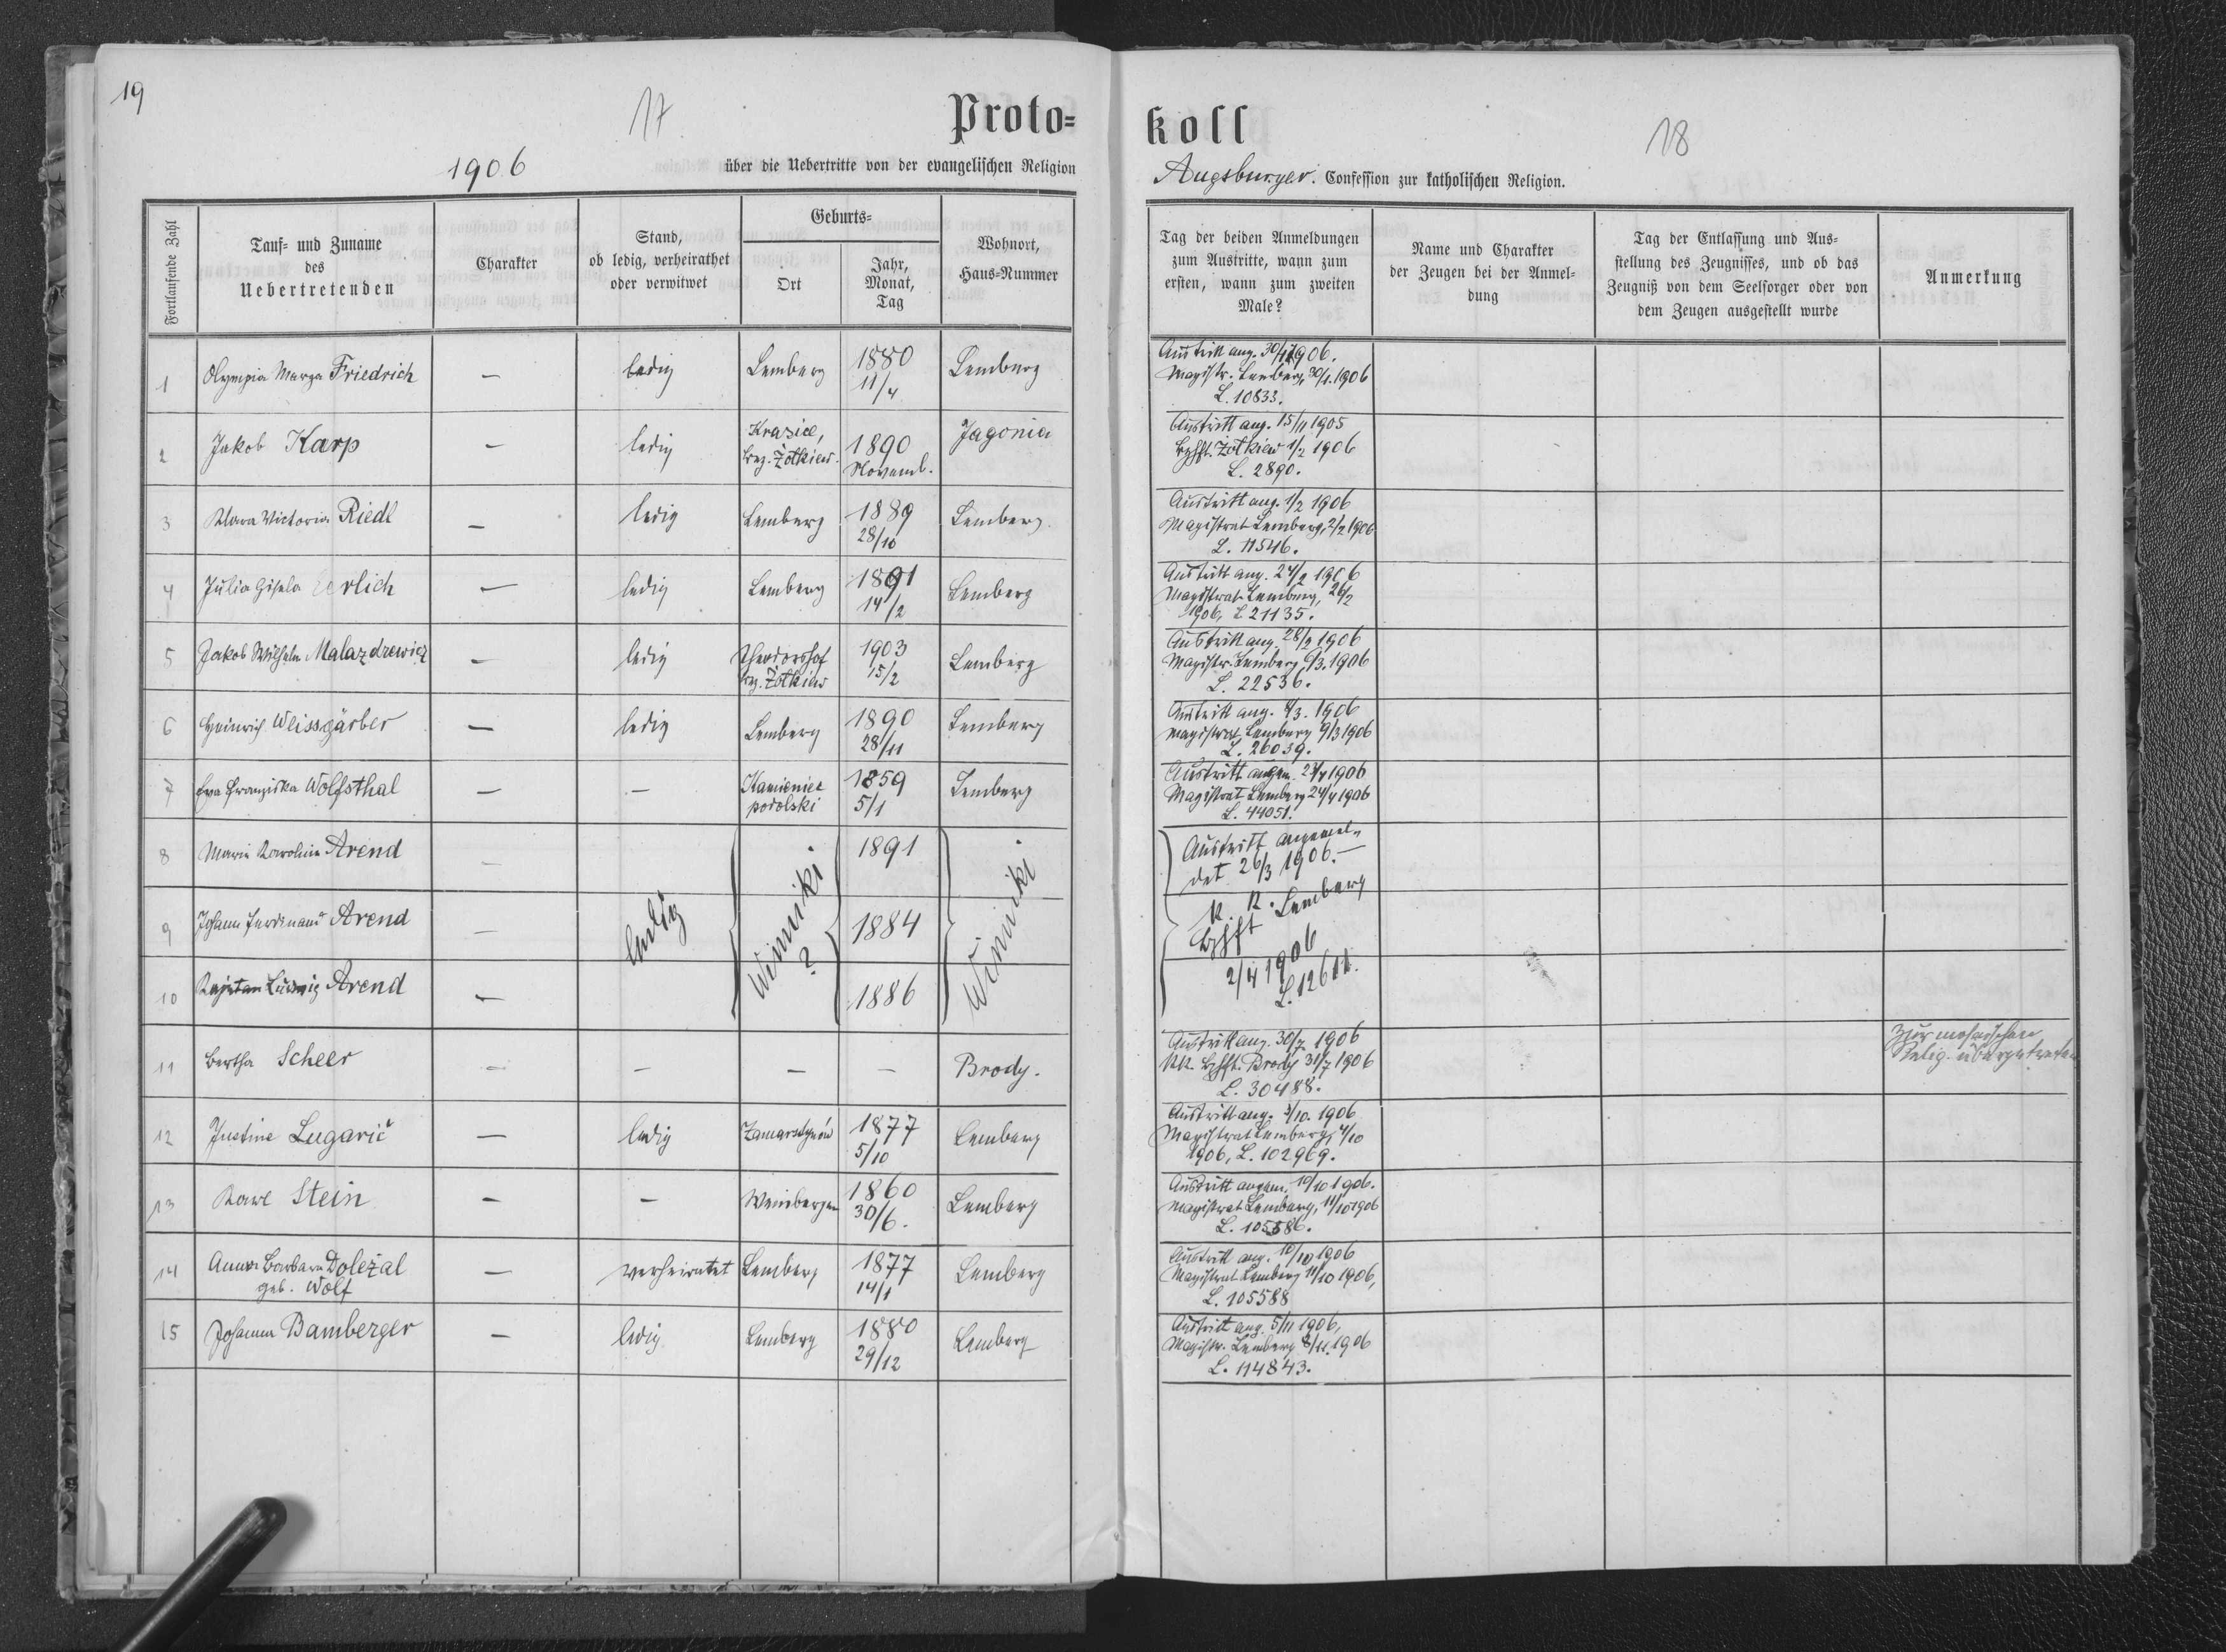 19
17
18
Proto=
koll
1906
über die Uebertritte von der evangelischen Religion
Augsburger. Confession zur katholischen Religion.
Fortlaufende Zahl
Tauf= und Zuname
des
Uebertretenden
Charakter
Stand,
ob ledig, verheirathet
oder verwitwet
Geburts=
Ort
Jahr,
Monat,
Tag
Wohnort,
Haus=Nummer
Tag der beiden Anmeldungen
zum Austritte, wann zum
ersten, wann zum zweiten
Male?
Name und Charakter
der Zeugen bei der Anmel=
dung
Tag der Entlassung und Aus=
stellung des Zeugnisses, und ob das
Zeugniß von dem Seelsorger oder von
dem Zeugen ausgestellt wurde
Anmerkung
1 Olympia Marya Friedrich — ledig Lemberg 1880 11/4 Lemberg
Austritt ang. 1906.
Magistr. Lemberg, 30/1. 1906
L. 10833.
2 Jakob Karp — ledig Krasice, bez. Żółkiew. 1890 Novemb. Jagonia
Austritt ang. 15/11 1905
Bzhft. Żółkiew 1/2 1906
L. 2890.
3 Klara Victoria Riedl — ledig Lemberg 1889 28/10 Lemberg.
Austritt ang. 1/2 1906
Magistrat Lemberg, 2/2 1906
L. 11546.
4 Julia Gisela — ledig Lemberg 1891 14/2 Lemberg
Austritt ang. 24/2 1906
Magistrat Lemberg, 26/2
1906, L 21135.
5 Jakob Wilhelm Malazdrewicz — ledig Theodorshof bez. Żółkiew 1903 15/2 Lemberg
Austritt ang. 28/2 1906
Magistr. Lemberg, 1906
L. 22536.
6 Heinrich Weissgärber — ledig Lemberg 1890 28/11 Lemberg
Austritt ang. 8/3. 1906
Magistrat Lemberg 9/3 1906
L. 26039.
7 Eva Franziska Wolfsthal — — Kamieniec podolski 1859 5/1 Lemberg
Austritt angem. 1906
Magistrat Lemberg 24/4 1906
L. 44051.
8 Marie Karoline Arend — 1891
9 Johann Ferdinand Arend — ledig Winniki ? 1884 Winniki
10 Kajetan Ludwig Arend — 1886
Austritt angemel=
det 26/3 1906.—
K. K. Lemberg
Bzhft
2/4 1906
L. 12611.
11 Bertha Scheer — — — — Brody.
Austritt ang. 30/7 1906
KK. Bzhft. Brody 31/7 1906
L. 30488.
Zur mosaischen
Relig. übergetreten
12 Justine Lugarič — ledig Zamarstynów 1877 5/10 Lemberg
Austritt ang. 3/10. 1906
Magistrat Lemberg, 4/10
1906, L. 102969.
13 Karl Stein — — Weinbergen 1860 30/6. Lemberg
Austritt angem. 10/10 1906.
Magistrat Lemberg, 11/10 1906
L. 105586.
14 Anna Barbara Doležal — verheiratet Lemberg 1877 14/1 Lemberg
geb. Wolf
Austritt ang. 10/10 1906
Magistrat Lemberg 11/10 1906,
L. 105588
15 Johanna Bamberger — ledig Lemberg 1880 29/12 Lemberg
Austritt ang. 5/11 1906,
Magistr. Lemberg 8/11. 1906
L. 114843.